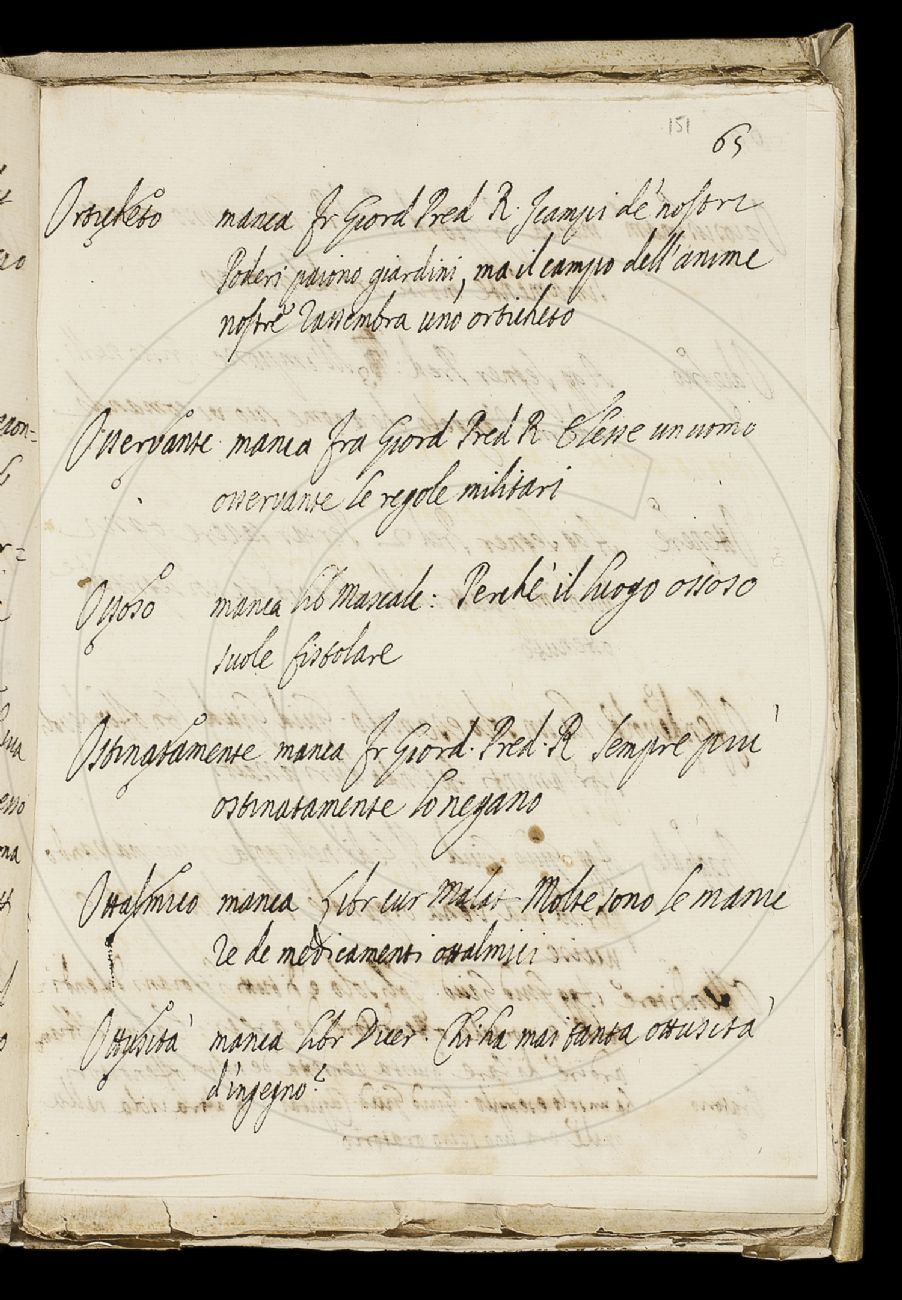 151
65
Orticheto manca Fr Giord Pred R. I campi de' nostri
Poderi paiono giardini, ma il campo dell'anime
nostre rassembra uno orticheto
Osservante manca Fra Giord Pred R Elesse un uomo
osservante le regole militari
Ossoso manca Lib Mascalc: Perchè il luogo ossoso
suole fistolare
Ostinatamente manca Fr Giord. Pred. R Sempre più
ostinatamente lo negano
Ottalmico manca Libr cur Malat Molte sono le manie
re de medicamenti ottalmici
Ottusità manca Libr Dicer. Chi ha mai tanta ottusità
d'ingegno?